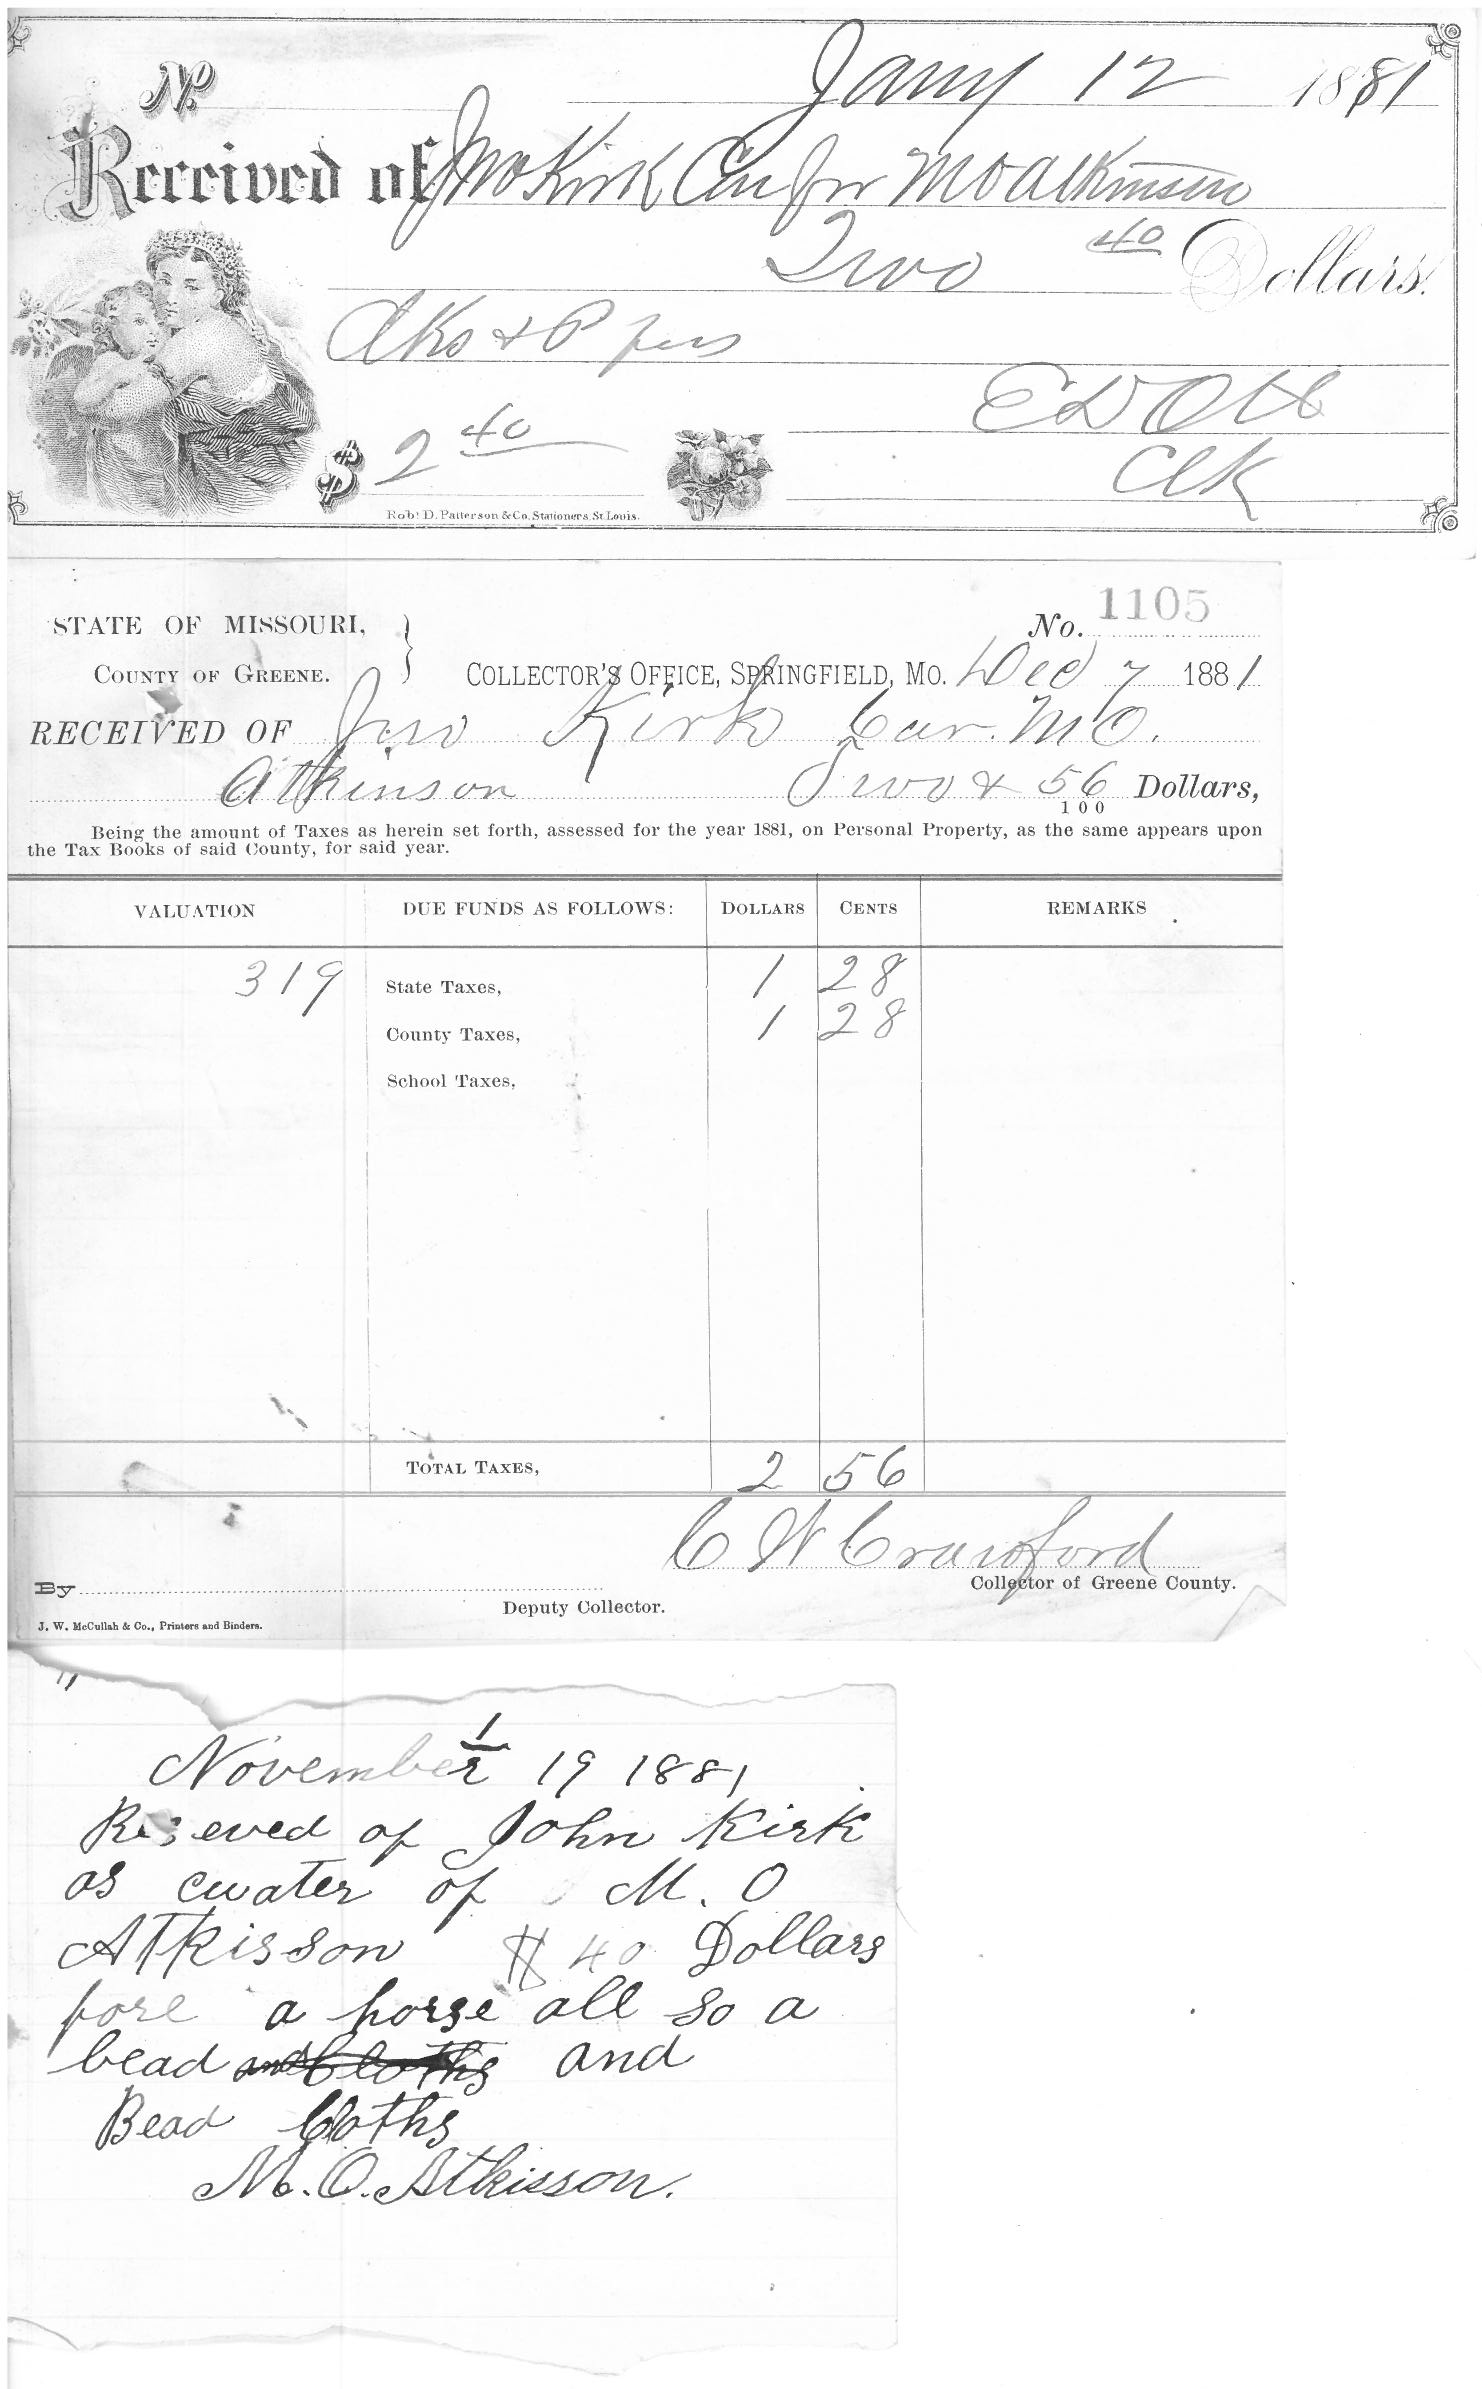 No. Jany 12 1881
Received of Jno Kirk Cur for M O Atkinson
Two 40 Dollars.
Clks & P fees
E D Ott
$ 2 40
Clk
Robt D. Patterson & Co. Stationers St Louis.
STATE OF MISSOURI,
COUNTY OF GREENE.
No. 1105
COLLECTOR'S OFFICE, SPRINGFIELD, MO. Dec 7 1881
RECEIVED OF Jno Kirk Cur. M O.
Atkinson Two & 56/100 Dollars,
Being the amount of Taxes as herein set forth, assessed for the year 1881, on Personal Property, as the same appears upon
the Tax Books of said County, for said year.
VALUATION DUE FUNDS AS FOLLOWS: DOLLARS CENTS REMARKS
319 State Taxes, 1 28
County Taxes, 1 28
School Taxes,
TOTAL TAXES, 2 56
C W Crawford
Collector of Greene County.
By
Deputy Collector.
J. W. McCullah & Co., Printers and Binders.
November 19 1881
Reseved of John Kirk
as cwater of M. O
Atkisson $ 40 Dollars
fore a horse all so a
bead and Cloths and
Bead Cloths
M. O. Atkisson.